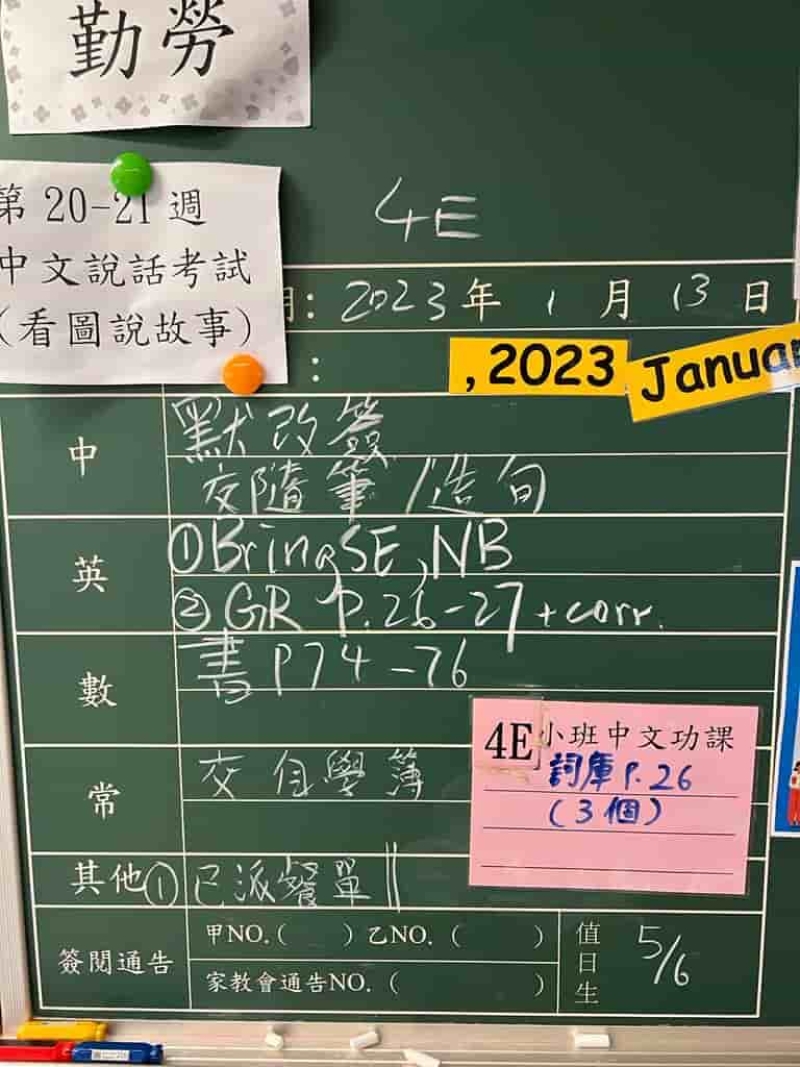 勤勞
第 20-21 週
中文說話考試
(看圖說故事)
4E
期：2023年 1 月 13 日
：
, 2023 Januar
中
默改簽
交隨筆/造句
英
①Bring SE, NB
②GR P.26-27+corr.
數
書 P74-76
常
交自學簿
4E小班中文功課
詞庫 P.26
(3個)
其他① 已派餐單
簽閱通告
甲NO.( ) 乙NO. ( )
家教會通告NO. ( )
值日生
5/6